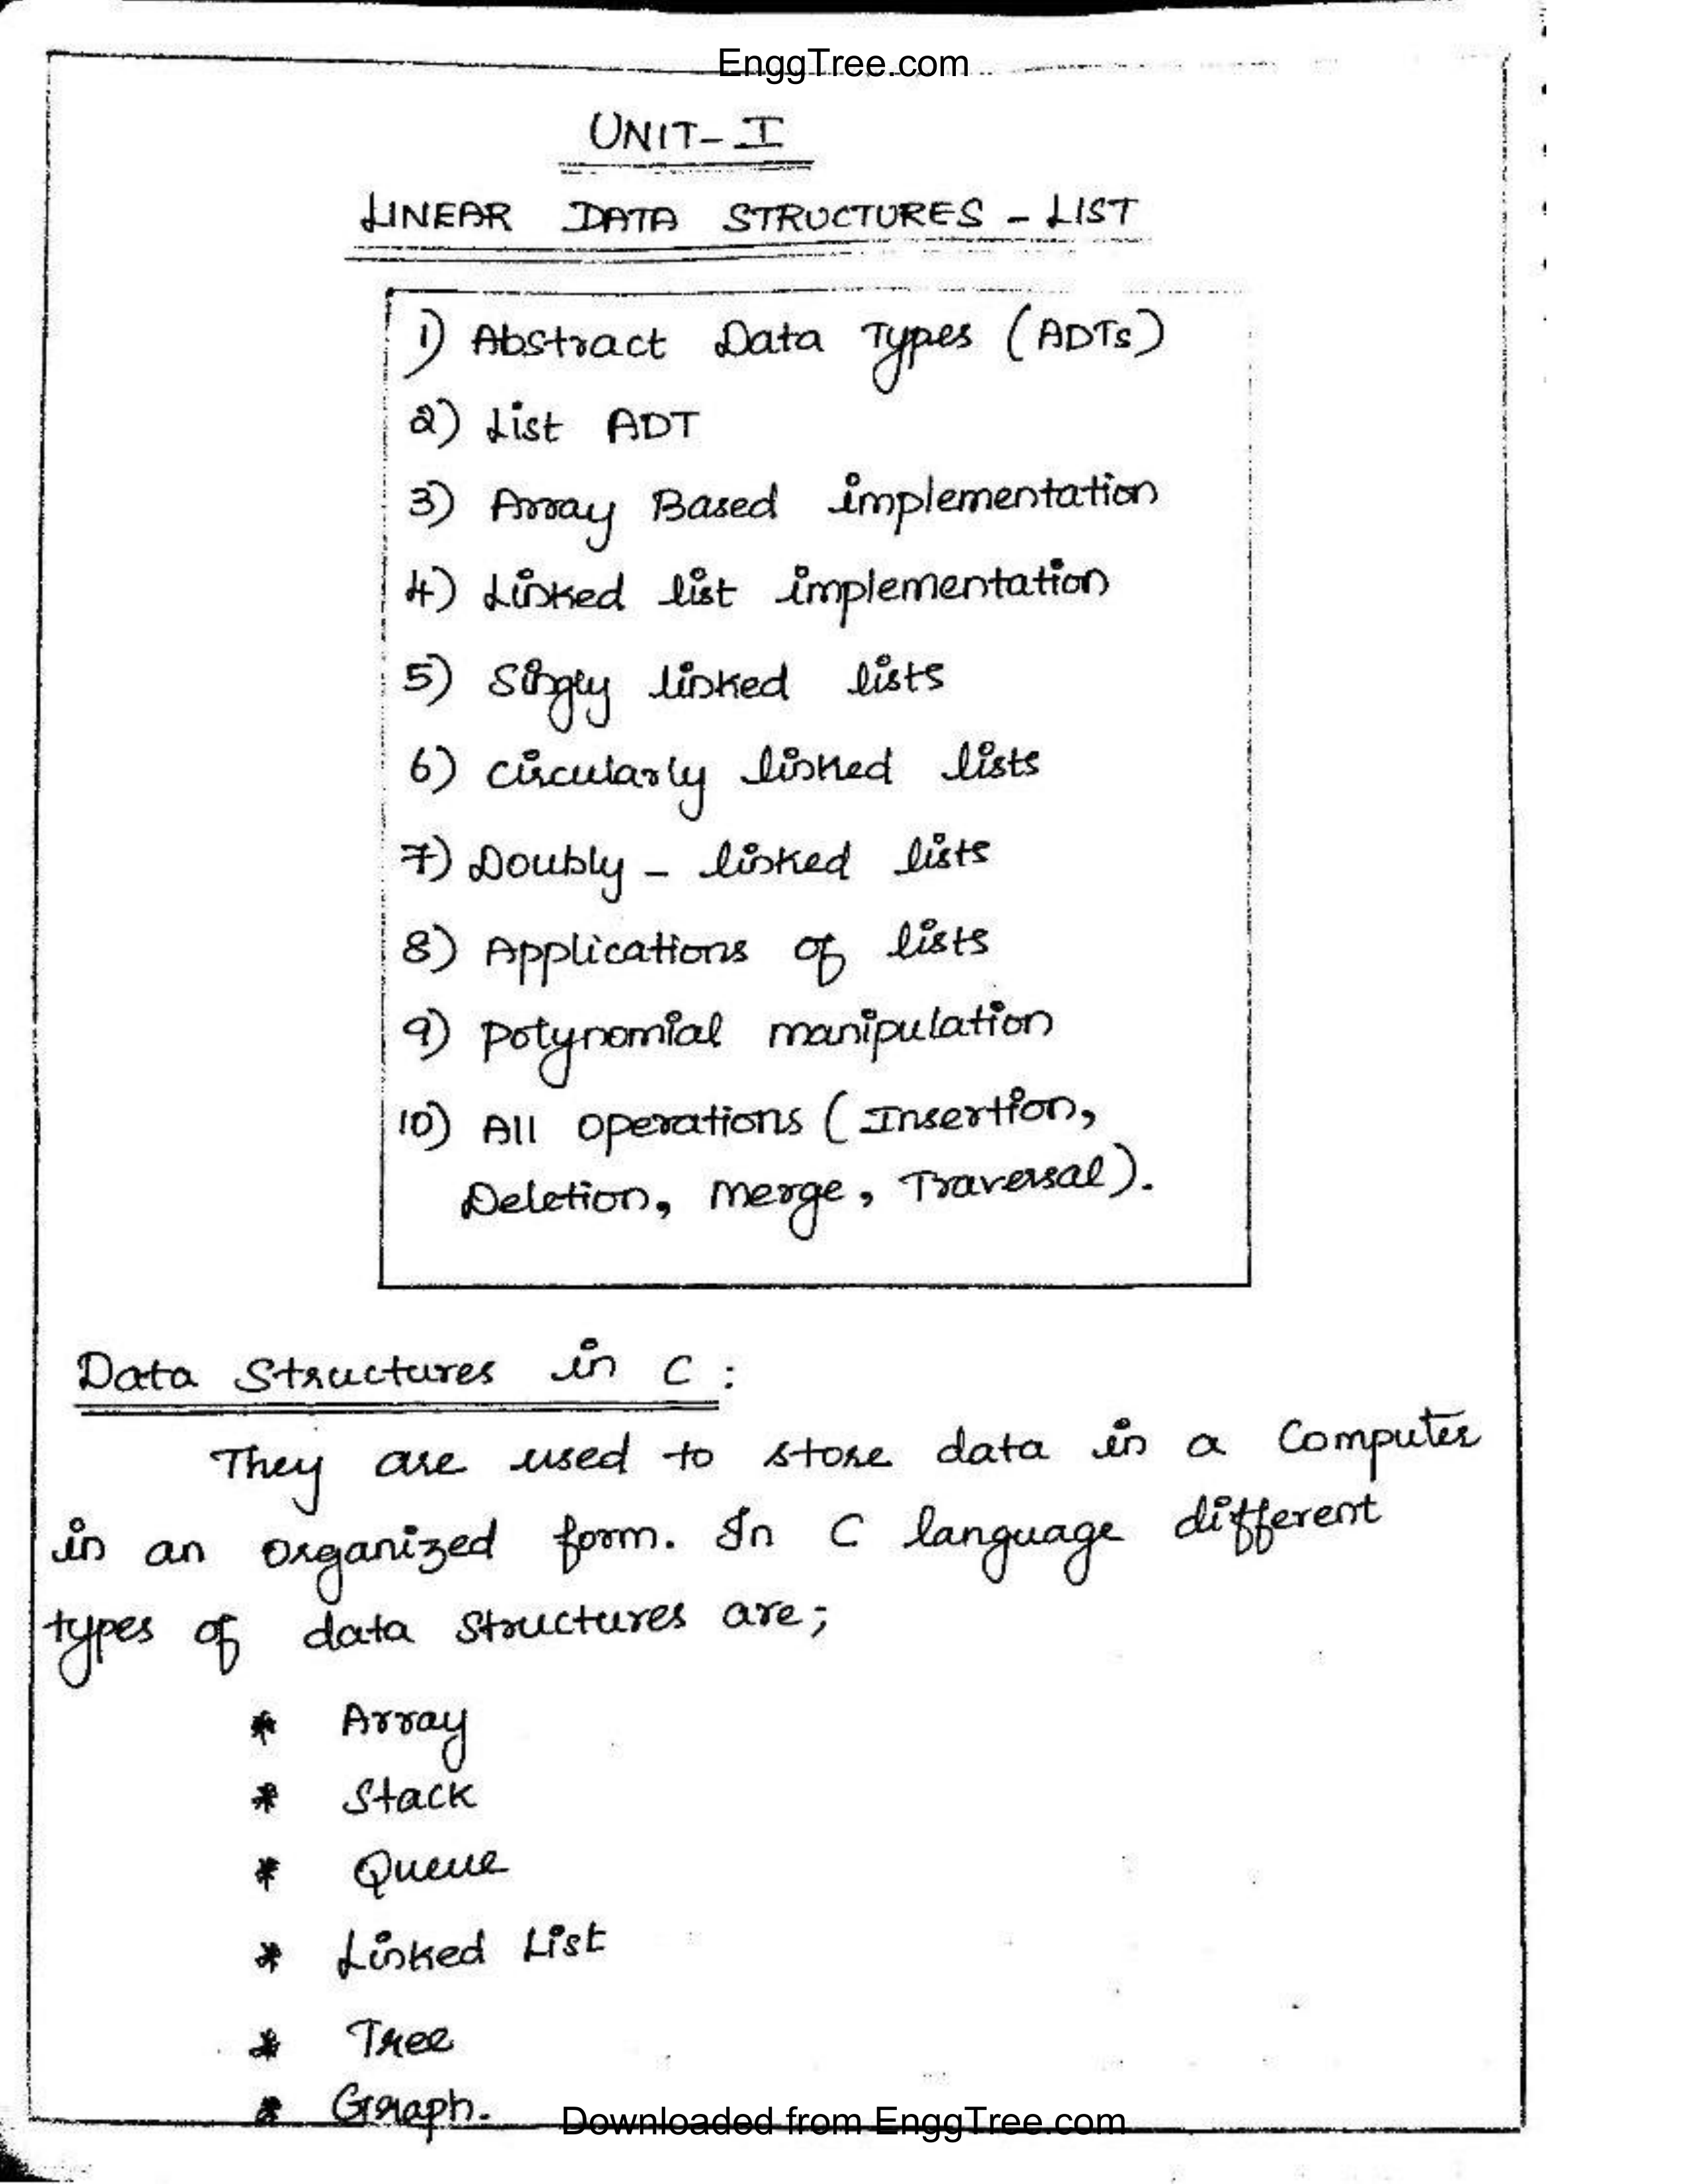 EnggTree.com
UNIT-I
LINEAR DATA STRUCTURES - LIST
1) Abstract Data Types (ADTs)
2) List ADT
3) Array Based implementation
4) Linked list implementation
5) Singly linked lists
6) circularly linked lists
7) Doubly - linked lists
8) Applications of lists
9) Polynomial manipulation
10) All operations (Insertion,
Deletion, Merge, Traversal).
Data Structures in C :
They are used to store data in a Computer
in an organized form. In C language different
types of data structures are;
* Array
* Stack
* Queue
* Linked List
* Tree
* Graph.
Downloaded from EnggTree.com